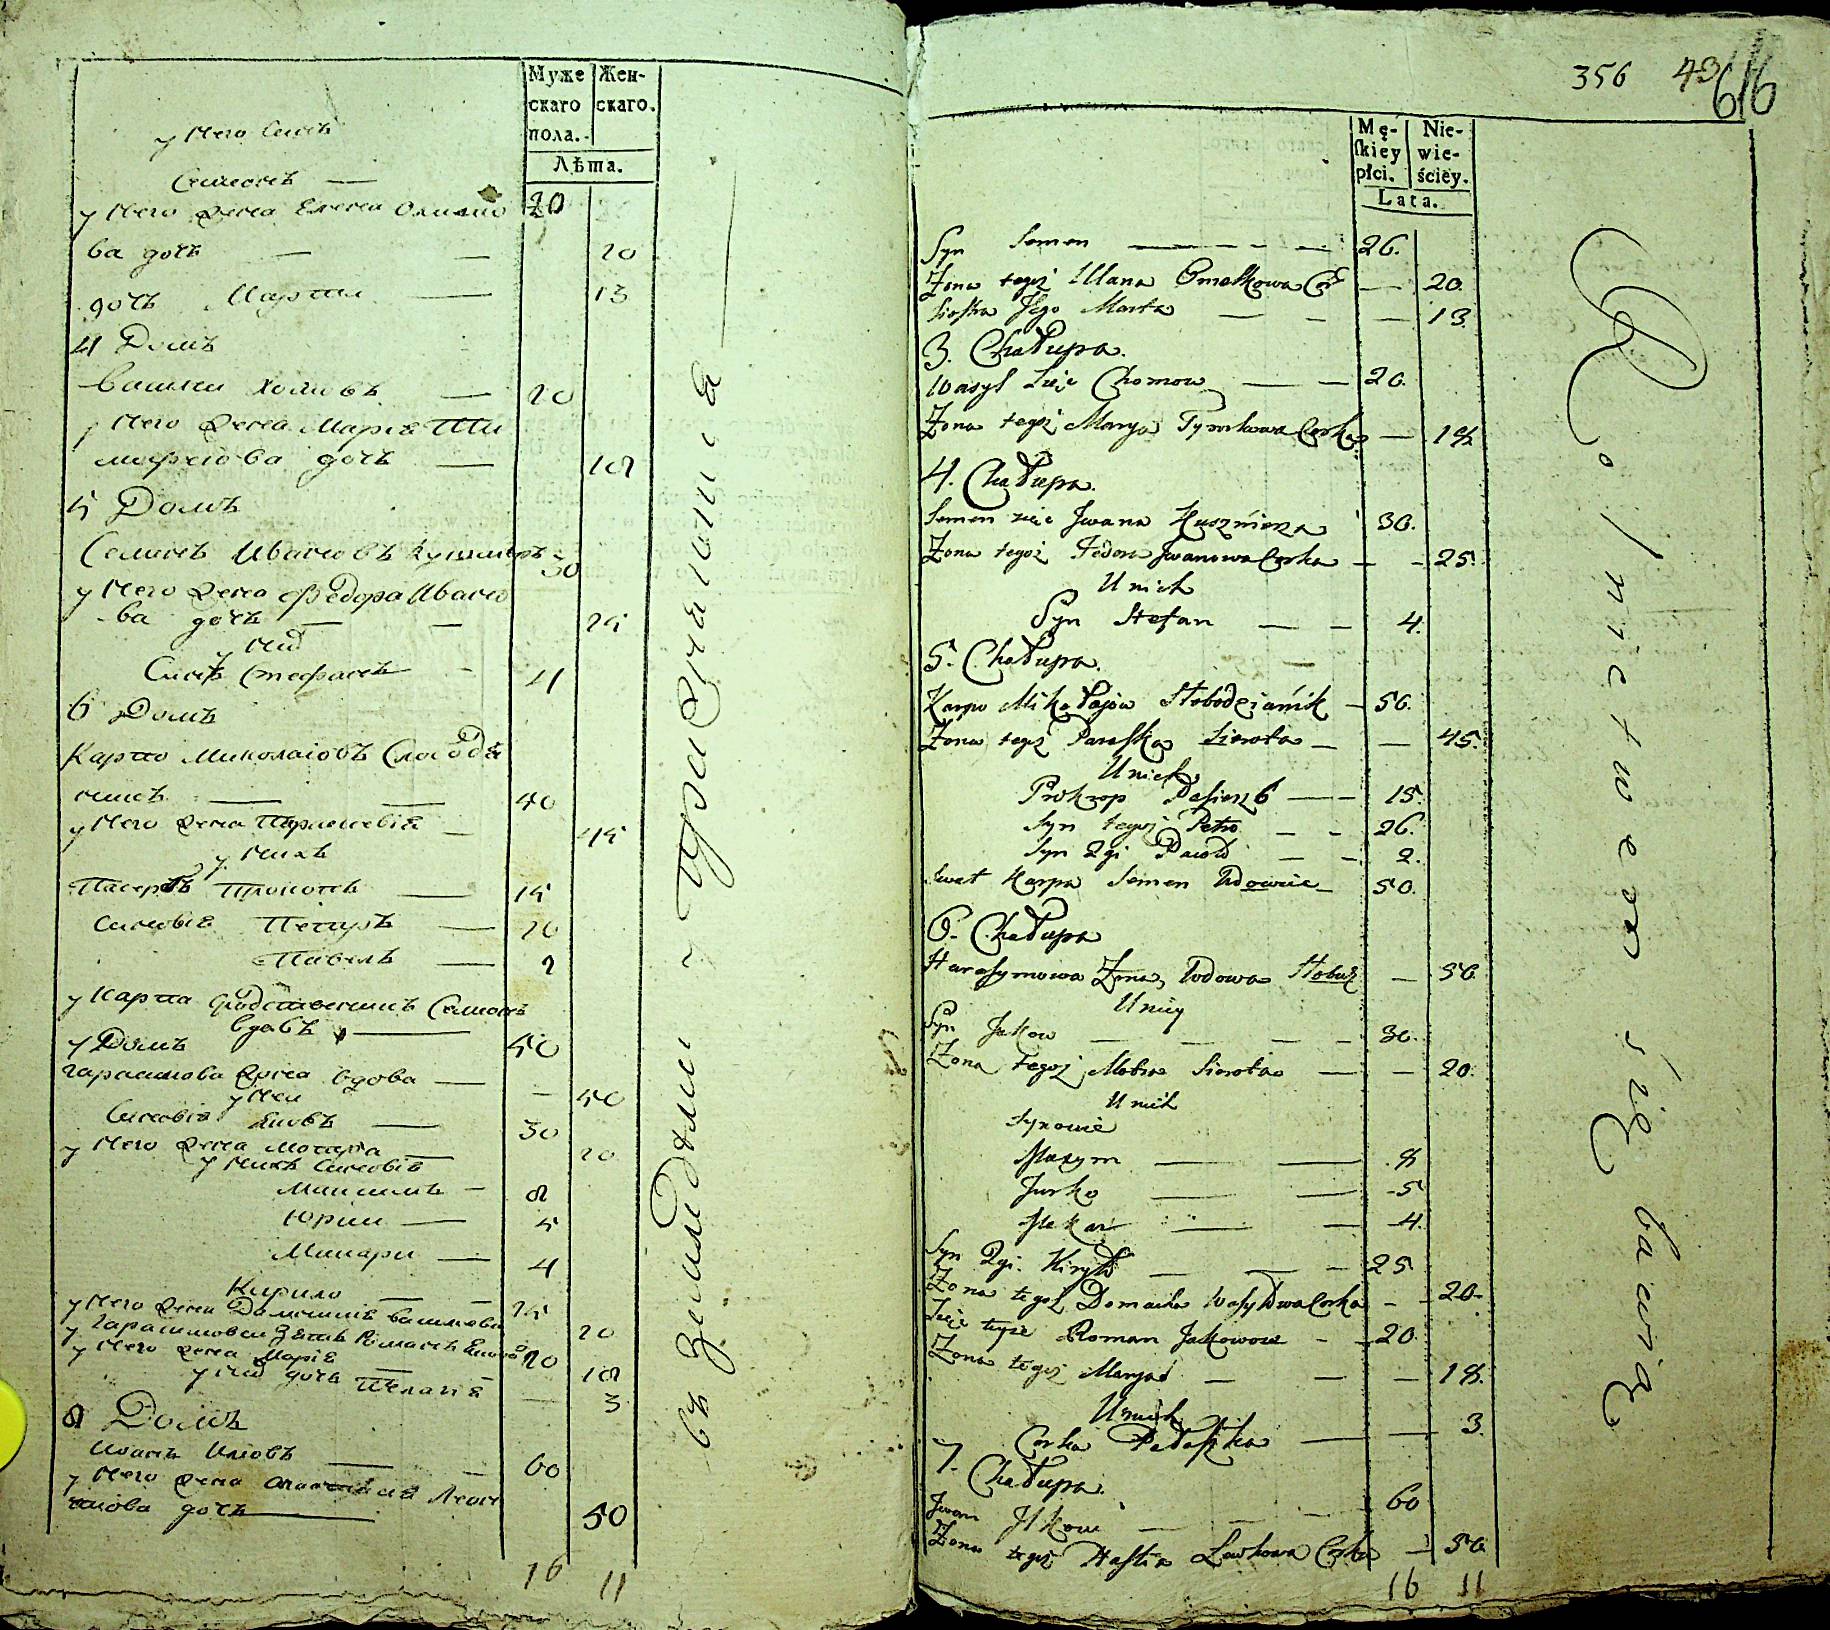 Муже
скаго
пола.
Жен-
скаго.
Лѣта.
у Него Синъ
Семионъ —
20
у Него Жена Елена Омелко
ва дочъ — — 20
дочъ Марта — 13
4 Домъ
Василь Хомовъ — 20
у Него Жена Мария Ти
мофеова дочъ — 18
5 Домъ
Семенъ Ивановъ Кушнеръ 30
у Него Жена Федора Ивано
ва дочъ — — 25
у Них
Синъ Стефанъ - 4
6 Домъ
Карпо Миколаіовъ Слобод
никъ — — 40
у Него Жена Параскевія — 45
у Нихъ
Пасербъ Прокопъ — 15
Синовія Петръ — 20
Павелъ — 2
у Карпа сродственникъ Семенъ
вдовъ — 50
7 Домъ
Гарасимова Жена вдова — — 50
у Неи
Синовія Яковъ — 30
у Него Жена Мотря — 20
у Нихъ Синовія
Максимъ — 8
Юрии — 5
Макари — 4
Кирило — — 25
у Него Жена Домникия Василова 20
у Гарасимовои Зять Романъ Яковов 20
у Него Жена Марія — 18
у Них дочъ Пелагія — 3
8 Домъ
Иванъ Илковъ — — 60
у Него Жена Анастасия Левк
ова дочъ — 50
16 11
въ земледелии и упражнении
356 49 616
Mę-
ſkiey
płci.
Nie-
wie-
ściey.
Lata.
Syn Semen — — — 26.
Zona tegoż Ulana Omelkowa Cor — 20.
Siostra Jego Marta — — — 13.
3. Chałupa.
Wasyl Zięć Chomow — — 20.
Zona tegoż Marya Tymkowa Corka — 18.
4. Chałupa.
Semen zięć Jwana Kusznierza 30.
Zona tegoż Fedora Jwanowa Corka — — 25.
U nich
Syn Stefan — — 4.
5. Chałupa.
Karpo Mikołajów Słobodzianik — 50.
Zona tegoż Paraſka Sierota — — 45.
U nich
Prokzop Pasierzb — — 15.
Syn tegoż Petro — — 26.
Syn 2gi Pawło — — 2.
Swat Karpa Semen Wdowiec — 50.
6. Chałupa
Harasymowa Zona, Wdowa — 50
U niey
Syn Jakow — — — — 30.
Zona tegoż Motra Sierota — — 20.
U nich
Synowie
Maxym — — 8
Jurko — — 5
Makar — — 4.
Syn 2gi. Kiryło — — — 25
Zona tegoż Domacha Wasylowa Corka - - 20.
Zięć teyże Roman Jakowow - - 20.
Zona tegoż Marya — — — 18.
U nich
Corka Pałaſzka — — 3.
7. Chałupa.
Jwan Jlkow — — — 60
Zona tegoż Nastia Lewkowa Corka — 50
16 11
Rolnictwem się bawią